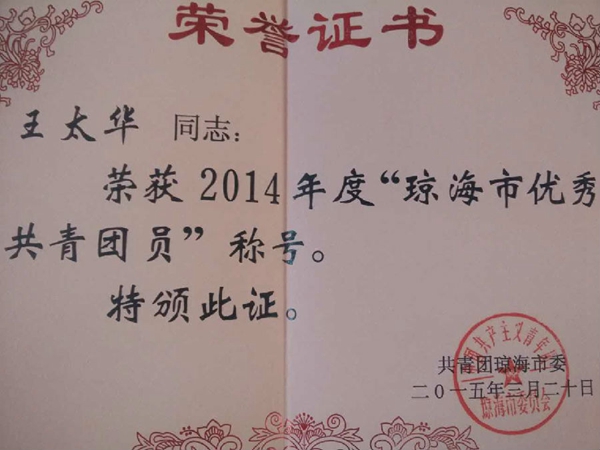 荣誉证书
王太华 同志：
荣获2014年度“琼海市优秀
共青团员”称号。
特颁此证。
共青团琼海市委
二0一五年三月二十日
中国共产主义青年团
琼海市委员会